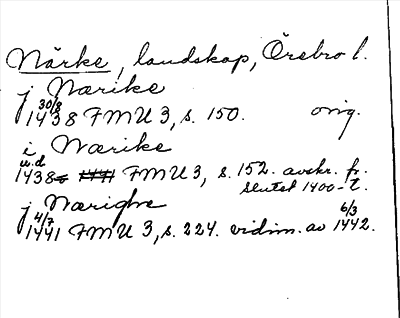 Närke, landskap, Örebro l.
j Nærike
30/8
1438 FMU 3, s. 150. orig.
i Nærike
u.d
1438 FMU 3, s. 152. avskr. fr.
slutet 1400-t.
j Nærighe
4/7 6/3
1441 FMU 3, s. 224. vidim. av 1442.